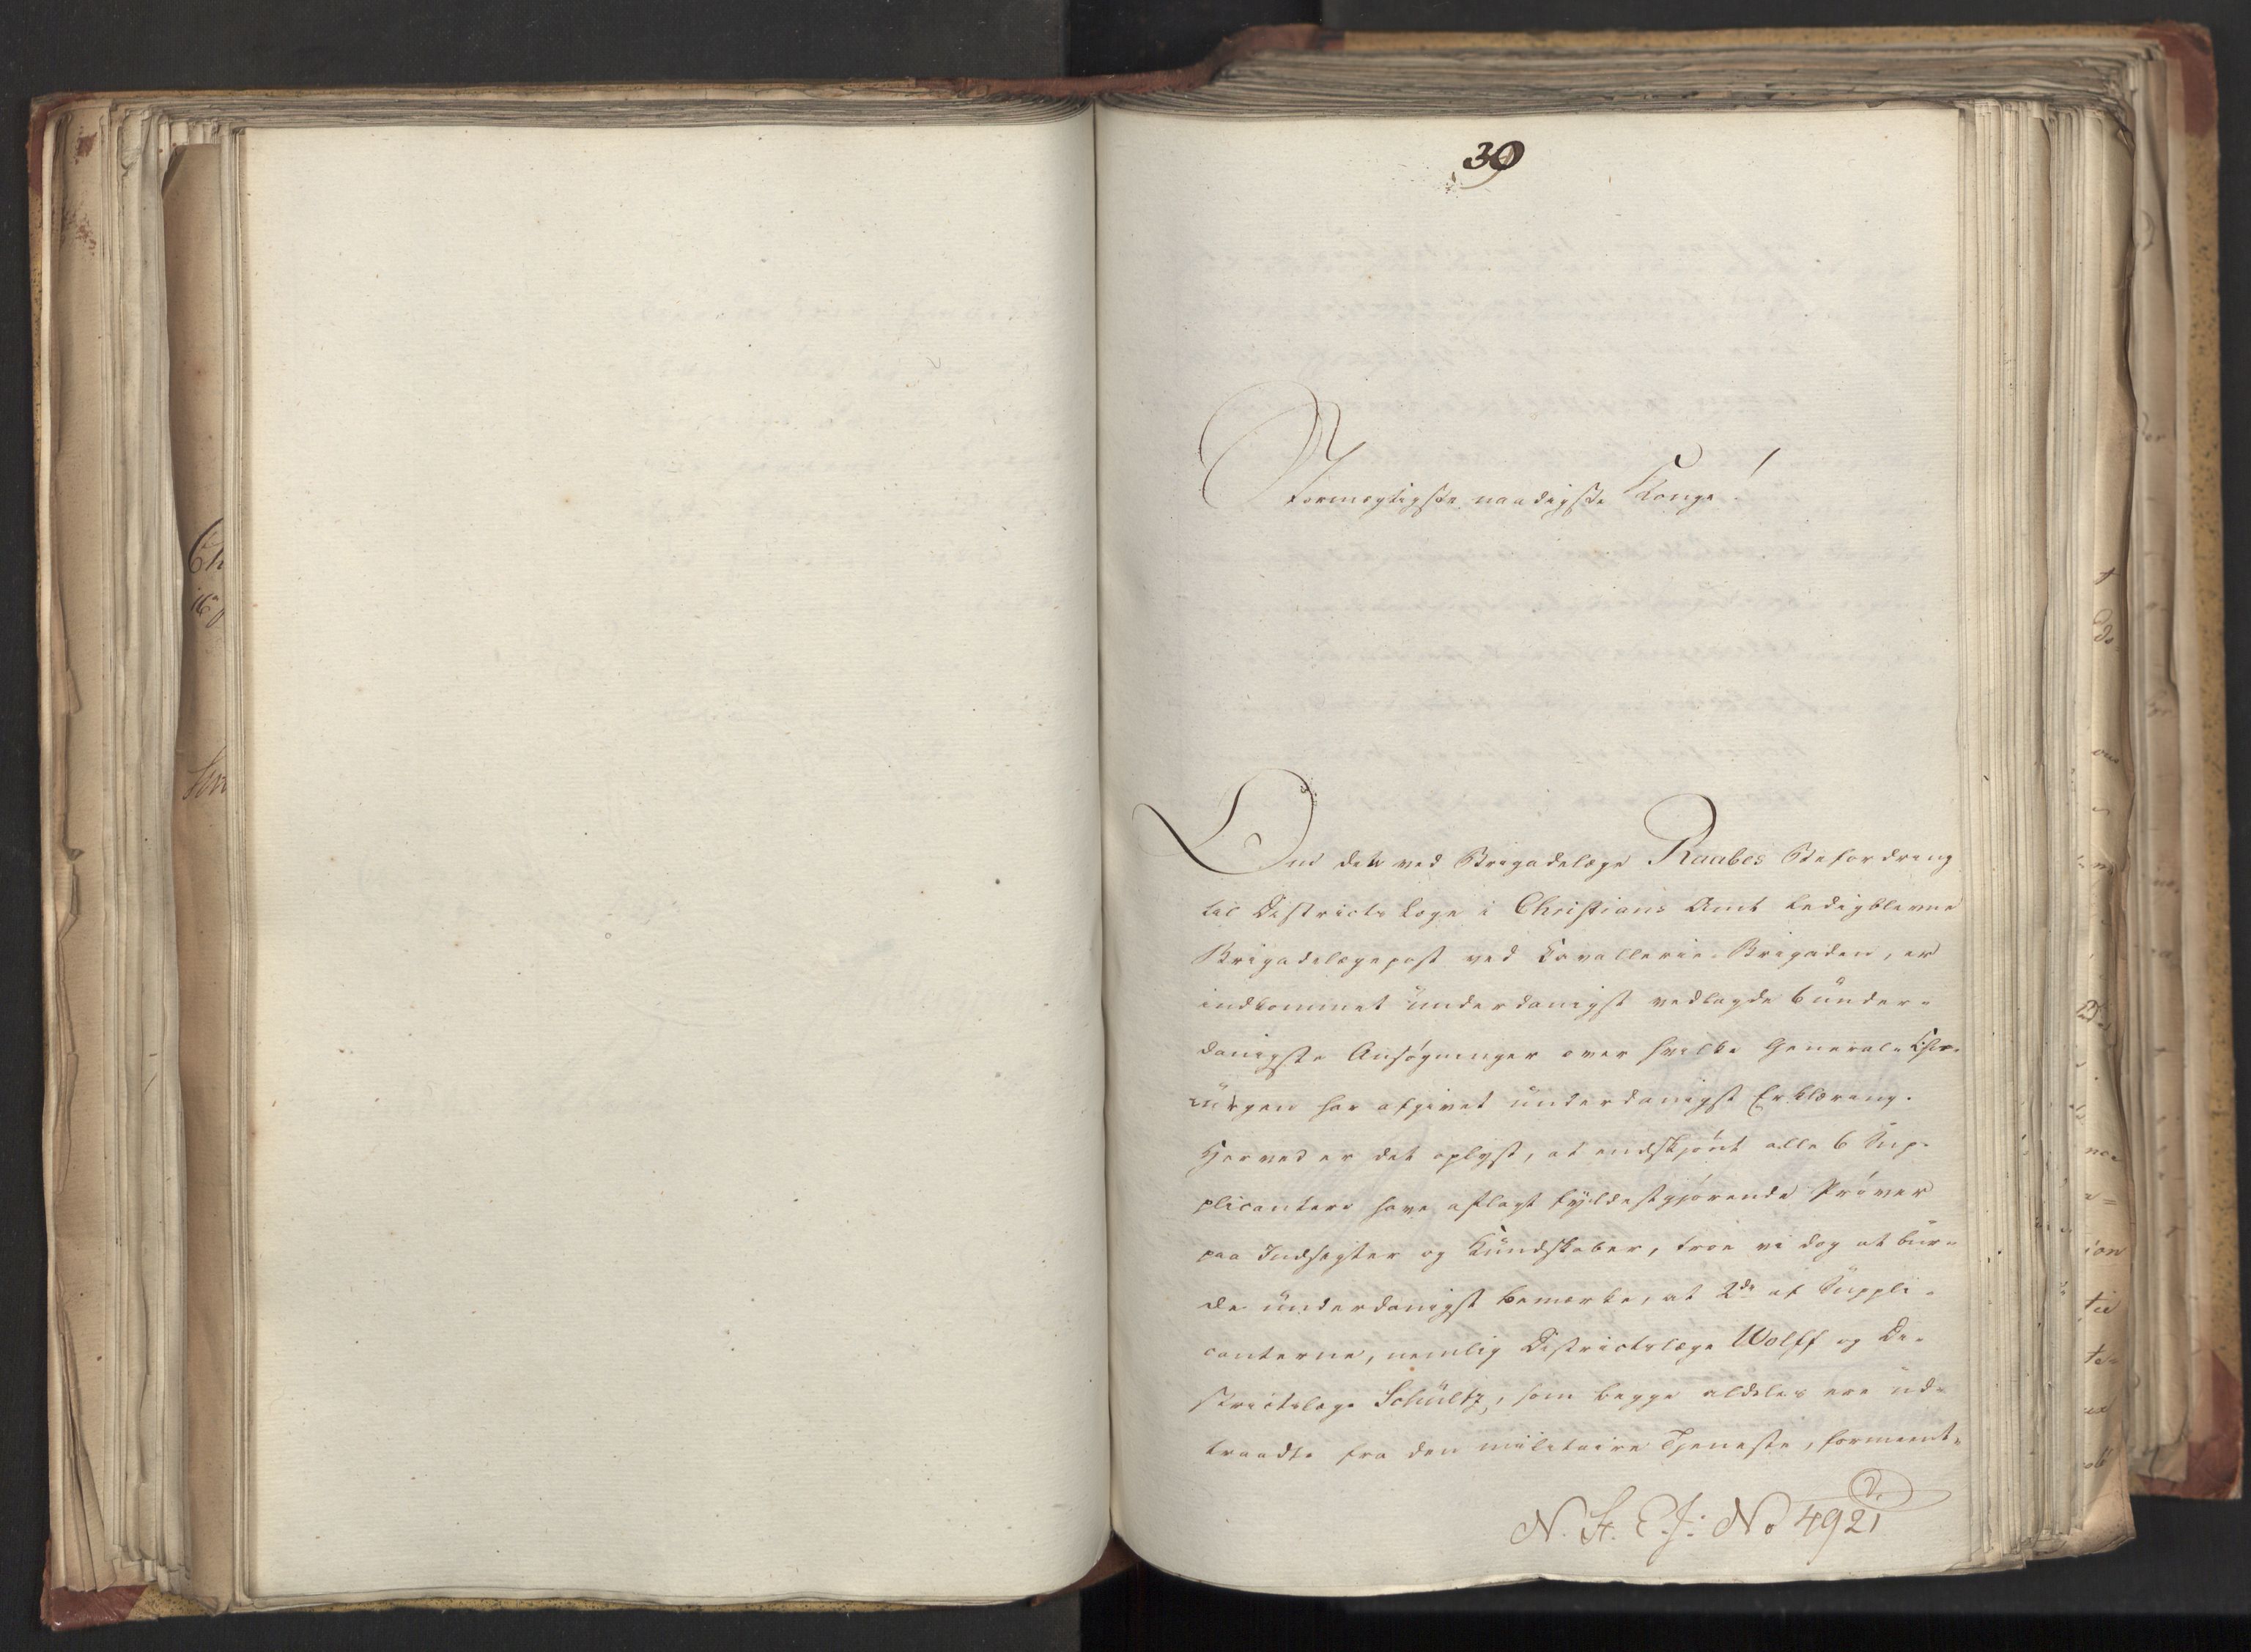 30
Stormægtigste naadigste Konge!
Om det ved Brigadelæge Raabes Befordring
til Districts Læge i Christians Amt ledigblevne
Brigadelægepost ved Cavallerie-Brigaden, er
indkommet underdanigst vedlagde 6 under-
danigste Ansøgninger over hvilke General-Chir-
urgen har afgivet underdanigst Erklæring.
Herved er det oplyst, at endskjønt alle 6 Sup-
plicantere have aflagt fyldestgjørende Prøver
paa Indsigter og Kundskaber, troe vi dog at bur-
de underdanigst bemærke, at 2de af Suppli-
canterne, nemlig Districtslæge Wolff og Di-
strictslæge Schültz, som begge aldeles ere ud-
traadte fra den militaire Tjeneste, forment-
N. St. E. J: No 4921